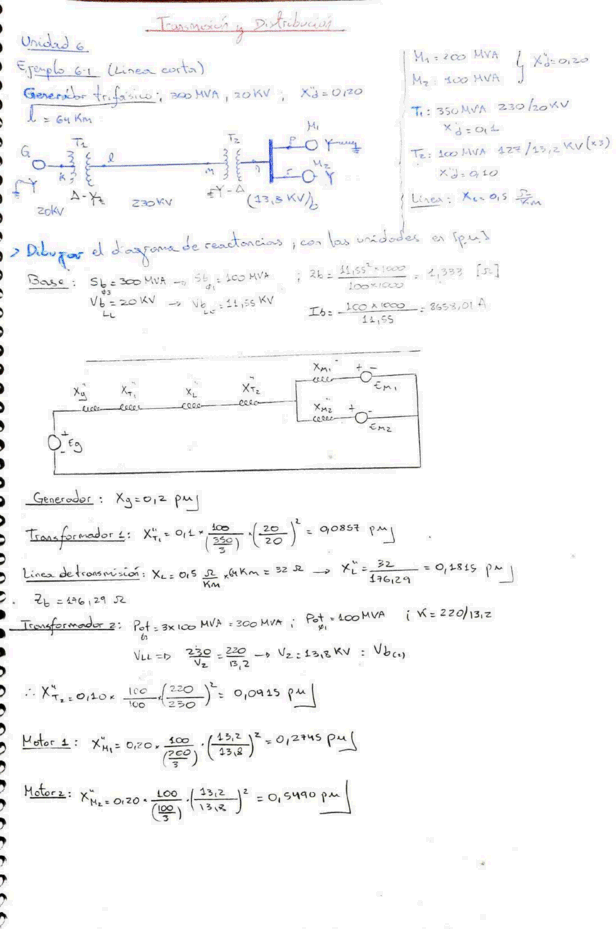 Transmisión y Distribución
Unidad 6
Ejemplo 6.1 (Línea corta)
Generador trifásico: 300 MVA, 20 KV ; X"d = 0,20
l = 64 Km
M1 = 200 MVA
M2 = 100 MVA
} X"d = 0,20
T1: 350 MVA 230/20 KV
X"d = 0,1
T2: 100 MVA 127/13,2 KV (x3)
X"d = 0,10
Línea: XL = 0,5 Ω/Km
G T1 l T2 M1
K m n P r M2
Δ-Y Y-Δ
20KV 230 KV (13,8 KV)b
> Dibujar el diagrama de reactancias, con las unidades en [p.u]
Base: Sb3φ = 300 MVA → Sb1φ = 100 MVA ; Zb = 11,55² × 1000 / 100×1000 = 1,333 [Ω]
VbLL = 20 KV → Vb = 11,55 KV Ib = 100 × 1000 / 11,55 = 8658,01 A
X"g X"T1 X"L X"T2 X"M1 + - EM1
X"M2 + - EM2
+ - Eg
Generador: Xg = 0,2 pu
Transformador 1: X"T1 = 0,1 × 100/(350/3) · (20/20)² = 0,0857 pu
Línea de transmisión: XL = 0,5 Ω/Km × 64 Km = 32 Ω → X"L = 32/176,29 = 0,1815 pu
Zb = 176,29 Ω
Transformador 2: Pot = 3x100 MVA = 300 MVA ; Pot1φ = 100 MVA ; K = 220/13,2
VLL => 230/V2 = 220/13,2 → V2 = 13,8 KV : Vb
∴ X"T2 = 0,10 × 100/100 × (220/230)² = 0,0915 pu
Motor 1: X"M1 = 0,20 · 100/(200/3) · (13,2/13,8)² = 0,2745 pu
Motor 2: X"M2 = 0,20 · 100/(100/3) · (13,2/13,8)² = 0,5490 pu